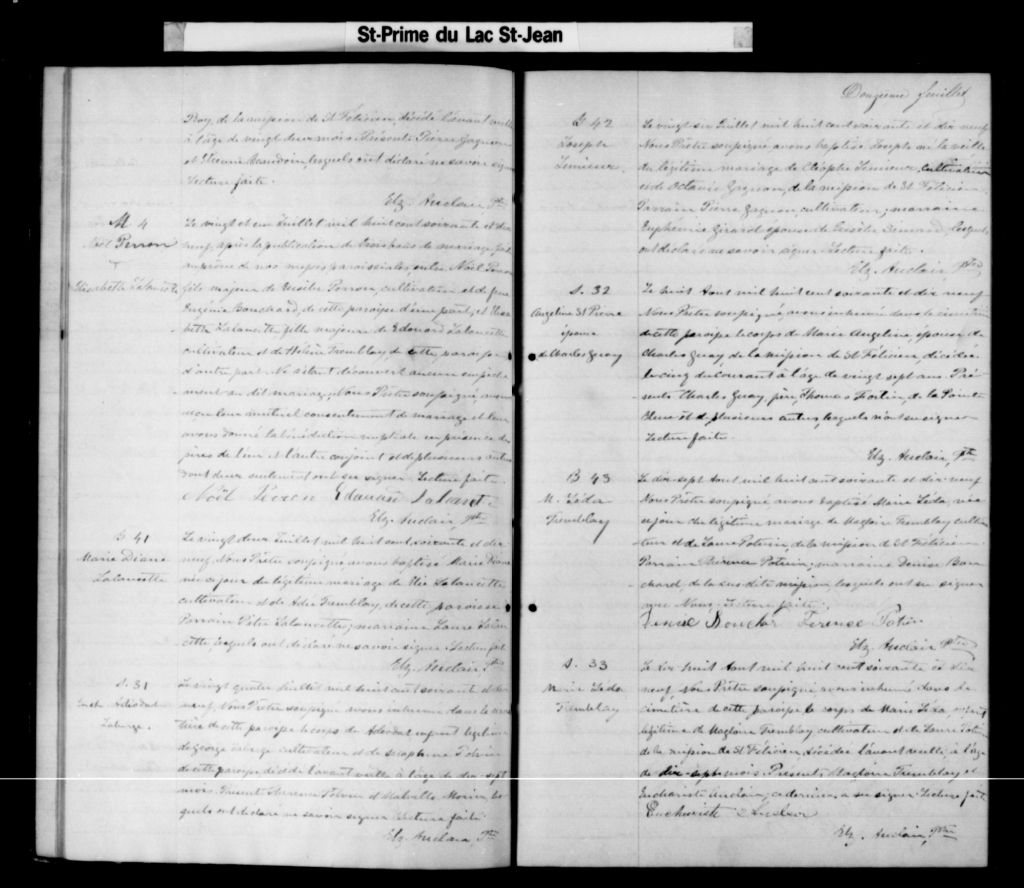 St-Prime du Lac St-Jean
Roy, de la mission de St Félicien, décédé l'avant veille
à l'âge de vingt deux mois. Présents Pierre Gagnon
et Etienne Beaudoin, lesquels ont déclaré ne savoir signer
Lecture faite.
Elz. Auclair, Ptre
M 4
Noël Perron
Elisabeth Lalancette
Le vingt et un Juillet mil huit cent soixante et dix
neuf, après la publication de trois bans de mariage
au prône de nos messes paroissiales, entre Noël Perron
fils majeur de Perron, cultivateur et de feue
Eugénie Bouchard, de cette paroisse d'une part, et Elisa-
beth Lalancette, fille majeure de Edouard Lalancette
cultivateur et de Helène Tremblay de cette paroisse
d'autre part. Ne s'étant découvert aucun empêche-
ment au dit mariage, Nous Prêtre soussigné, avons
reçu leur mutuel consentement de mariage et leur
avons donné la bénédiction nuptiale en présence des
pères de l'un et l'autre conjoint et de plusieurs autres
dont deux seulement ont su signer. Lecture faite.
Noël Perron Edouard Lalancet.
Elz. Auclair, ptre
B 41
Marie Diana
Lalancette
Le vingt deux Juillet mil huit cent soixante et dix
neuf, Nous Prêtre soussigné avons baptisé Marie Diana
née ce jour du légitime mariage de Elie Lalancette
cultivateur et de Adée Tremblay, de cette paroisse
Parrain Pitre Lalancette; marraine Laure Lalan-
cette lesquels ont déclaré ne savoir signer. Lecture faite
Elz. Auclair, Ptre
S. 31
Adéodat
Laberge.
Le vingt quatre Juillet mil huit cent soixante et dix
neuf, Nous Prêtre soussigné avons inhumé dans le cime-
tière de cette paroisse le corps de Adéodat enfant légitime
de George Laberge cultivateur et de Séraphine Potvin
de cette paroisse décédé l'avant veille à l'âge de dix-sept
mois. Présents Potvin et Morin les-
quels ont déclaré ne savoir signer. Lecture faite.
Elz. Auclair, Ptre
Douzième feuillet
B 42
Joseph
Lemieux.
Le vingt six Juillet mil huit cent soixante et dix neuf
Nous Prêtre soussigné avons baptisé Joseph né la veille
du légitime mariage de Cléophe Lemieux, cultivateur
et de Octavie Gagnon, de la mission de St Félicien.
Parrain Pierre Gagnon, cultivateur; marraine
Euphémie Girard épouse de lesquels
ont déclaré ne savoir signer. Lecture faite.
Elz. Auclair, Ptre
S. 32
Angeline St Pierre
épouse
de Charles Guay
Le huit Août mil huit cent soixante et dix neuf
Nous Prêtre soussigné, avons inhumé dans le cimetière
de cette paroisse le corps de Marie Angeline, épouse de
Charles Guay, de la mission de St Félicien, décédée
le cinq du courant à l'âge de vingt sept ans. Pré-
sents Charles Guay, père, Thomas Fortin, de la Pointe
Bleue et de plusieurs autres, lesquels n'ont su signer
Lecture faite.
Elz. Auclair, Ptre
B 43
M. Léda
Tremblay
Le dix sept Août mil huit cent soixante et dix neuf
Nous Prêtre soussigné, avons baptisé Marie Léda, née
ce jour du légitime mariage de Magloire Tremblay cultiva-
teur et de Laure Potvin, de la mission de St Félicien.
Parrain Térence Potvin; marraine Denise Bou-
chard, de la sus dite mission, lesquels ont su signer
avec Nous. Lecture faite.
Denise Boucher Terence Potvin
Elz. Auclair Ptre
S. 33
Marie Léda
Tremblay
Le dix huit Août mil huit cent soixante et dix
neuf, Nous Prêtre soussigné avons inhumé dans le
cimetière de cette paroisse le corps de Marie Léda, enfant
légitime de Magloire Tremblay cultivateur et de Laure Potvin
de la mission de St Félicien décédée l'avant veille, à l'âge
de dix-sept mois. Présents Magloire Tremblay et
Euchariste Auclair; ce dernier a su signer. Lecture faite.
Euchariste Auclair
Elz. Auclair, Ptre